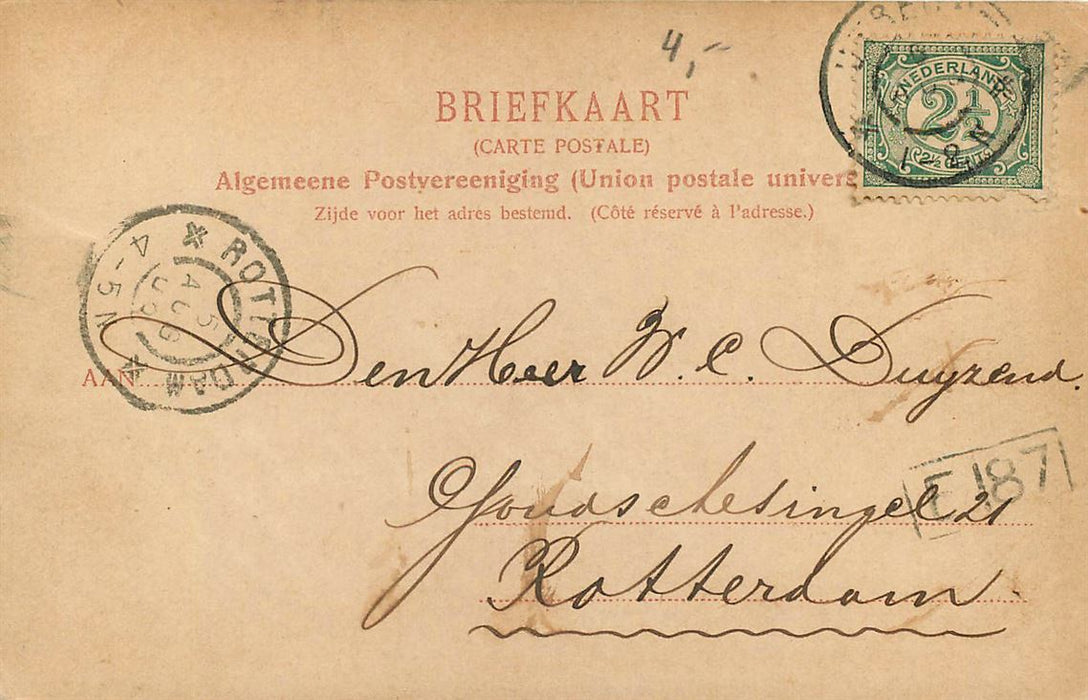 4,-
BRIEFKAART
(CARTE POSTALE)
Algemeene Postvereeniging (Union postale univers
Zijde voor het adres bestemd. (Côté réservé à l'adresse.)
NEDERLAND
2½
2½ CENT
ROTTERDAM
4-5N
5
AUG
AAN Den Heer W. C. Duyzend.
Goudschesingel 21
E 187
Rotterdam